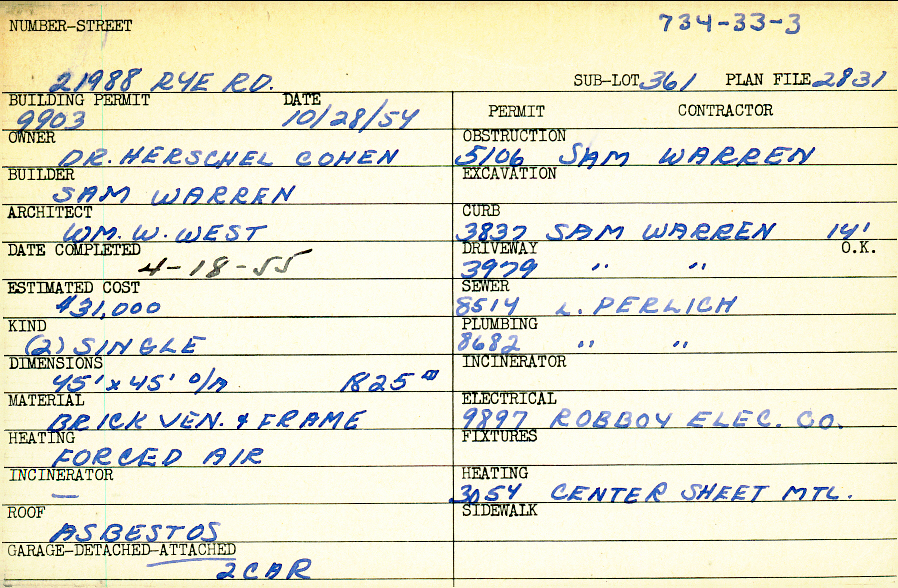 NUMBER-STREET 734-33-3
21988 RYE RD. SUB-LOT 361 PLAN FILE 2831
BUILDING PERMIT DATE
9903 10/28/54
OWNER
DR. HERSCHEL COHEN
BUILDER
SAM WARREN
ARCHITECT
WM. W. WEST
DATE COMPLETED
4-18-55
ESTIMATED COST
$31,000
KIND
(2) SINGLE
DIMENSIONS
45' x 45' O/A 1825
MATERIAL
BRICK VEN. & FRAME
HEATING
FORCED AIR
INCINERATOR
—
ROOF
ASBESTOS
GARAGE-DETACHED-ATTACHED
2 CAR
PERMIT CONTRACTOR
OBSTRUCTION
5106 SAM WARREN
EXCAVATION
CURB
3837 SAM WARREN 14'
DRIVEWAY O.K.
3979 " "
SEWER
8514 L. PERLICH
PLUMBING
8682 " "
INCINERATOR
ELECTRICAL
9897 ROBBOY ELEC. CO.
FIXTURES
HEATING
3054 CENTER SHEET MTL.
SIDEWALK